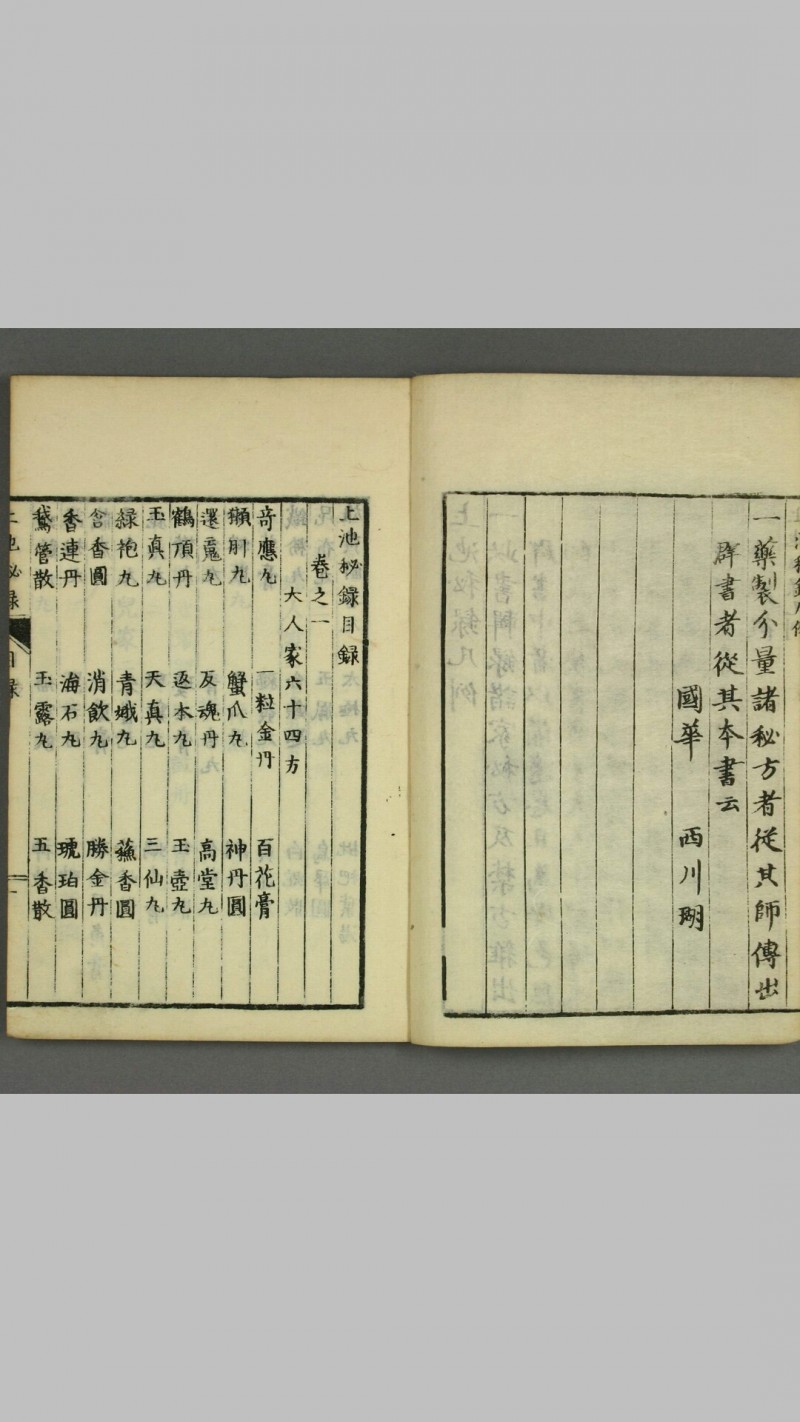 一藥製分量諸秘方者從其師傳出
群書者從其本書云
國華　西川瑚
上池秘録目録
卷之一
大人家六十四方
奇應丸　一粒金丹　百花膏
獺肝丸　蟹爪丸　神丹圓
還魂丸　反魂丹　高堂丸
鶴頂丹　返本丸　玉壺丸
玉真丸　天真丸　三仙丸
緑袍丸　青娥丸　蘓香圓
含香圓　消飲丸　勝金丹
香連丹　海石丸　琥珀圓
鵞管散　玉露丸　五香散
上池秘録　目録　一